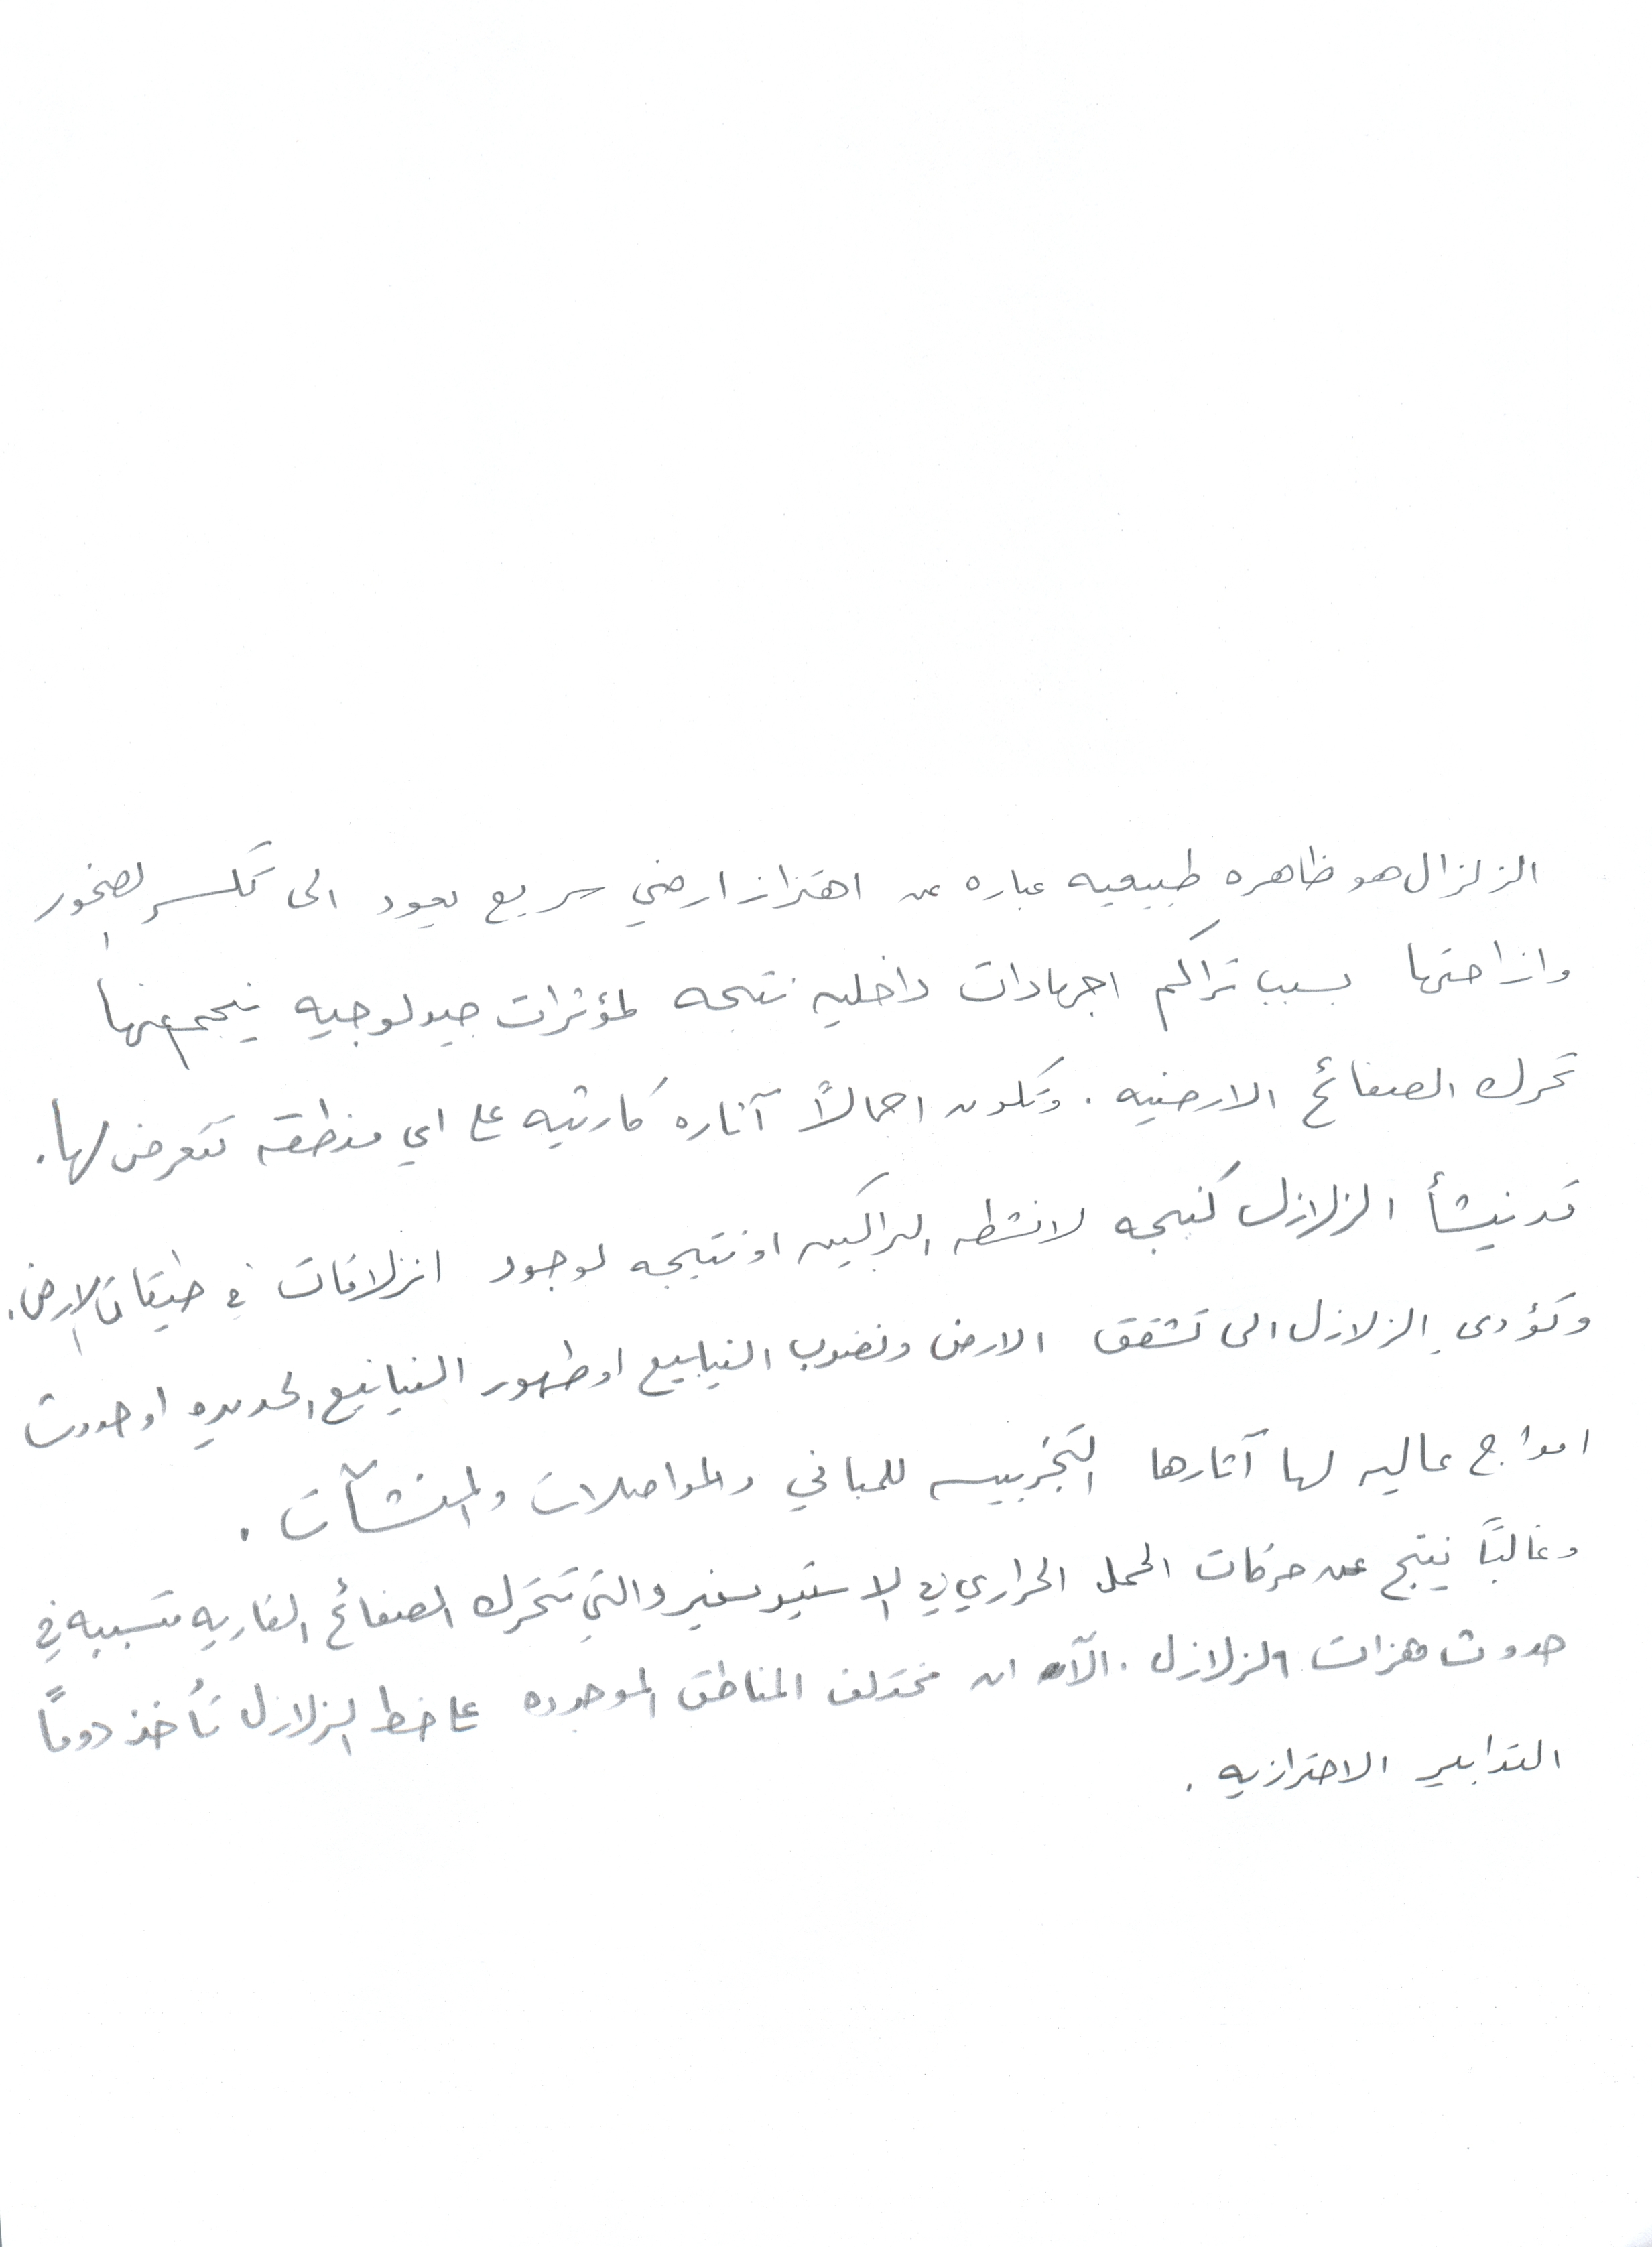 الزلزال هو ظاهره طبيعيه عباره عن اهتزاز ارضي سريع يعود الى تكسر الصخور
وازاحتها بسبب تراكم اجهادات داخليه نتيجه لمؤثرات جيولوجيه ينجم عنها
تحرك الصفائح الارضيه . وتكون اجمالاً آثاره كارثيه على اي منطقه تتعرض لها .
قد ينشأ الزلازل كنتيجه لانشطه البراكين او نتيجه لوجود انزلاقات في طبقات الارض .
وتؤدي الزلازل الى تشقق الارض ونضوب الينابيع او ظهور الينابيع الجديده او حدوث
امواج عاليه لها آثارها التخريبيه للمباني والمواصلات والمنشآت .
وغالباً ينتج عن حركات الحمل الحراري في الاستينوسفير والتي تتحرك الصفائح القاريه متسببه في
حدوث هزات الزلازل . الآن ان مختلف المناطق الموجوده على خط الزلازل تأخذ دوماً
التدابير الاحترازيه .